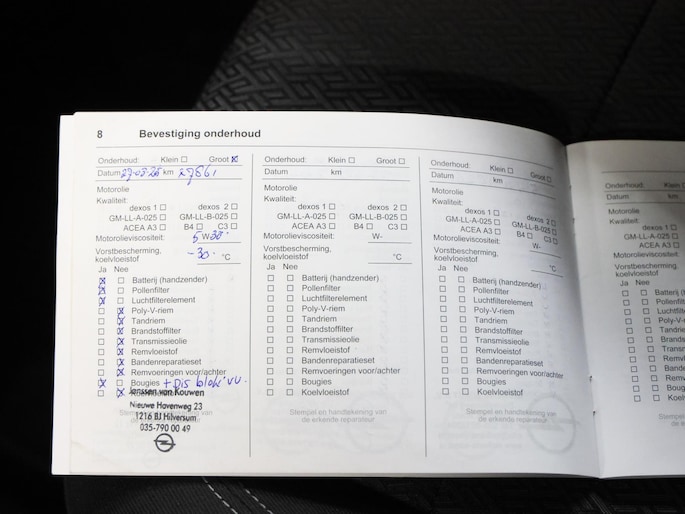 8 Bevestiging onderhoud
Onderhoud: Klein ☐ Groot ☒
Datum km 27861
Motorolie
Kwaliteit:
dexos 1 ☐ dexos 2 ☐
GM-LL-A-025 ☐ GM-LL-B-025 ☐
ACEA A3 ☐ B4 ☐ C3 ☐
Motorolieviscositeit: 5 W- 30
Vorstbescherming,
koelvloeistof -30 °C
Ja Nee
☒ ☐ Batterij (handzender)
☒ ☐ Pollenfilter
☒ ☐ Luchtfilterelement
☐ ☒ Poly-V-riem
☐ ☒ Tandriem
☐ ☒ Brandstoffilter
☐ ☒ Transmissieolie
☐ ☒ Remvloeistof
☐ ☒ Bandenreparatieset
☐ ☒ Remvoeringen voor/achter
☒ ☐ Bougies + Dis blok
☐ ☒
Janssen van Kouwen
Nieuwe Havenweg 23
1216 BJ Hilversum
035-790 00 49
Onderhoud: Klein ☐ Groot ☐
Datum km
Motorolie
Kwaliteit:
dexos 1 ☐ dexos 2 ☐
GM-LL-A-025 ☐ GM-LL-B-025 ☐
ACEA A3 ☐ B4 ☐ C3 ☐
Motorolieviscositeit: W-
Vorstbescherming,
koelvloeistof °C
Ja Nee
☐ ☐ Batterij (handzender)
☐ ☐ Pollenfilter
☐ ☐ Luchtfilterelement
☐ ☐ Poly-V-riem
☐ ☐ Tandriem
☐ ☐ Brandstoffilter
☐ ☐ Transmissieolie
☐ ☐ Remvloeistof
☐ ☐ Bandenreparatieset
☐ ☐ Remvoeringen voor/achter
☐ ☐ Bougies
☐ ☐ Koelvloeistof
Stempel en handtekening van
de erkende reparateur
Onderhoud: Klein ☐ Groot ☐
Datum km
Motorolie
Kwaliteit:
dexos 1 ☐ dexos 2 ☐
GM-LL-A-025 ☐ GM-LL-B-025 ☐
ACEA A3 ☐ B4 ☐ C3 ☐
Motorolieviscositeit: W-
Vorstbescherming,
koelvloeistof °C
Ja Nee
☐ ☐ Batterij (handzender)
☐ ☐ Pollenfilter
☐ ☐ Luchtfilterelement
☐ ☐ Poly-V-riem
☐ ☐ Tandriem
☐ ☐ Brandstoffilter
☐ ☐ Transmissieolie
☐ ☐ Remvloeistof
☐ ☐ Bandenreparatieset
☐ ☐ Remvoeringen voor/achter
☐ ☐ Bougies
☐ ☐ Koelvloeistof
Stempel en handtekening van
de erkende reparateur
Onderhoud: Klein ☐
Datum km
Motorolie
Kwaliteit:
dexos 1 ☐
GM-LL-A-025 ☐
ACEA A3 ☐
Motorolieviscositeit:
Vorstbescherming,
koelvloeistof
Ja Nee
☐ ☐ Batterij
☐ ☐
☐ ☐
☐ ☐ Poly-V-
☐ ☐
☐ ☐
☐ ☐
☐ ☐
☐ ☐
☐ ☐
☐ ☐
☐ ☐